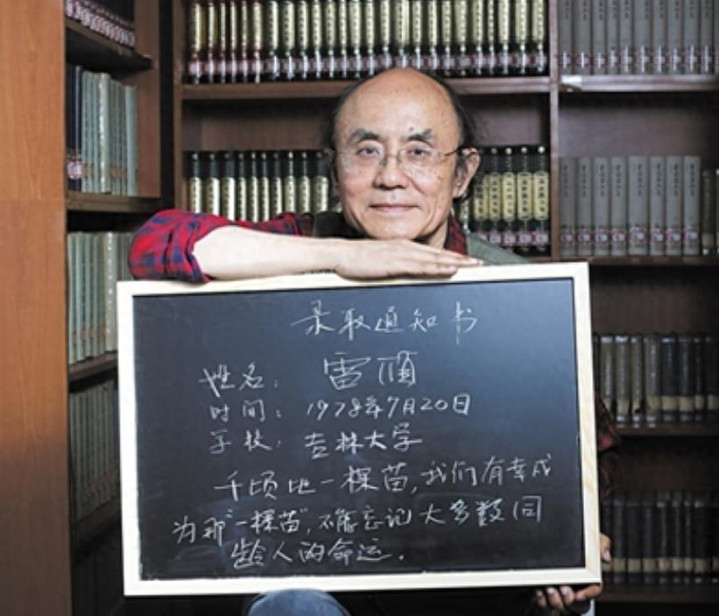 录取通知书
姓名: 雷颐
时间: 1978年7月20日
学校: 吉林大学
千顷地一棵苗,我们有幸成
为那"一棵苗",不能忘记大多数同
龄人的命运.